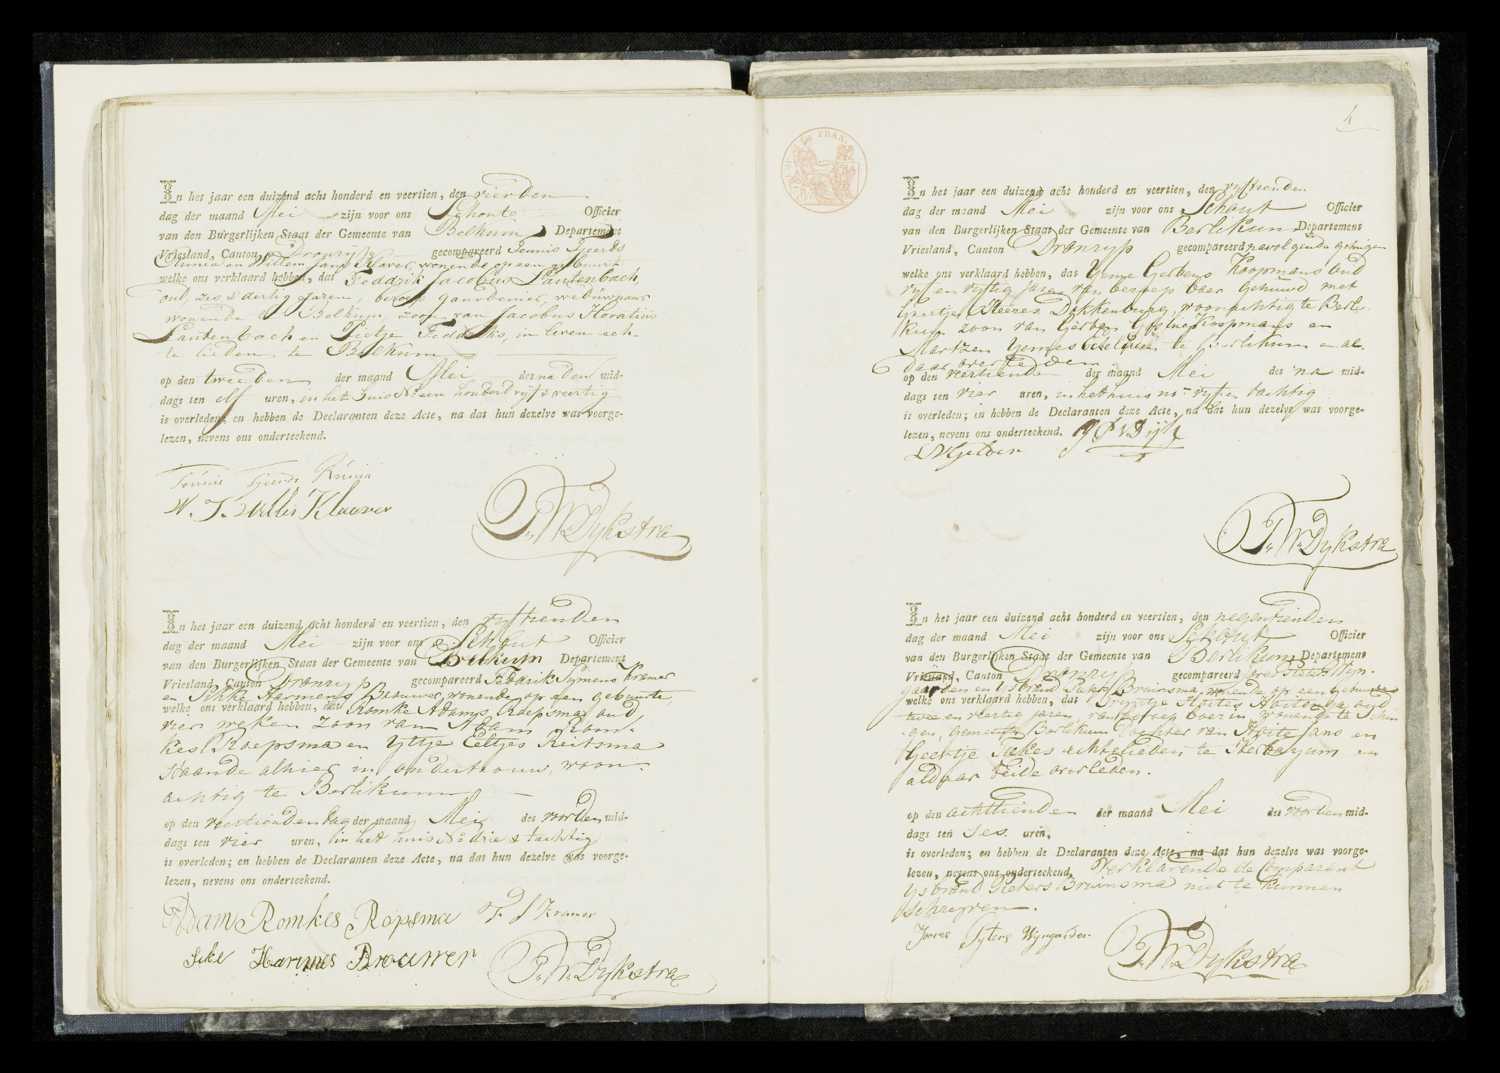 In het jaar een duizend acht honderd en veertien, den vierden
dag der maand Mei zijn voor ons Schoute Officier
van den Burgerlijken Staat der Gemeente van Belkum Departement
Vriesland, Canton Dronryp gecompareerd Teunis Tjeerds
en Willem Jans Klaver, wonende op een gebuurt
welke ons verklaard hebben, dat Feddrik Jacobus Lautenbach,
oud zes & dertig Jaren, beroep weduwnaar
wonende Belkum, zoon van Jacobus Horatius
Lautenbach en Pietje Feddriks, in leven ech-
te lieden te Belkum
op den tweeden der maand Mei des na den mid-
dags ten elf uren, en het huis No een honderd vijf & veertig
is overleden; en hebben de Declaranten deze Acte, na dat hun dezelve was voorge-
lezen, nevens ons onderteekend.
Teunis Tjeerds
W. J. Klaver
T. W. Dykstra
In het jaar een duizend acht honderd en veertien, den vyftienden
dag der maand Mei zijn voor ons Schout Officier
van den Burgerlijken Staat der Gemeente van Berlikum Departement
Vriesland, Canton Dronryp gecompareerd Fedrik Symens Kramer
en Sikke Harmens Brouwer, wonende op een gebuurte
welke ons verklaard hebben, dat Romke Adams Roepsma oud
vier weken zoon van Adam Rom-
kes Roepsma en Yttje Eeltjes Reitsma
staande alhier in ondertrouw, woon-
achtig te Berlikum
op den veertienden dag der maand Mei des voorden mid-
dags ten vier uren, in het huis No drie & tachtig
is overleden; en hebben de Declaranten deze Acte, na dat hun dezelve was voorge-
lezen, nevens ons onderteekend.
Adam Romkes Ropsma F. S Kramer
Sike Harmes Brouwer T. W. Dykstra
4
In het jaar een duizend acht honderd en veertien, den vyftienden
dag der maand Mei zijn voor ons Schout Officier
van den Burgerlijken Staat der Gemeente van Berlikum Departement
Vriesland, Canton Dronryp gecompareerd navolgende getuigen
welke ons verklaard hebben, dat Yeme Gerbens Koopmans oud
vyf en vyftig jaren van beroep boer gehuwd met
Grietje Dekkenburg, woonachtig te Berli-
kum zoon van Gerben Koopmans en
Martzen Yemes te Berlikum en al-
daar overleden
op den veertiende der maand Mei des na mid-
dags ten vier uren, in het huis no vyf en tachtig
is overleden; in hebben de Declaranten deze Acte, na dat hun dezelve was voorge-
lezen, nevens ons onderteekend. v. Dijk
T. W. Dykstra
In het jaar een duizend acht honderd en veertien, den negentienden
dag der maand Mei zijn voor ons Schout Officier
van den Burgerlijken Staat der Gemeente van Berlikum Departement
Vriesland, Canton Dronryp gecompareerd Pieters Wyn-
gaarden en Ysbrand Pieters Bruinsma, wonende op een gebuurte
welke ons verklaard hebben, dat Trijntje Hoites oud
twee en veertig jaren, van beroep boerin wonende te
gemeente Berlikum dochter van Hoite Jans en
Geertje Sakes echtelieden te en
aldaar beide overleden.
op den achttienden der maand Mei des voorden mid-
dags ten ses uren,
is overleden; en hebben de Declaranten deze Acte, na dat hun dezelve was voorge-
lezen, nevens ons onderteekend, verklarende de Comparant
Ysbrand Pieters Bruinsma niet te kunnen
schryven.
Wyngarden T. W. Dykstra